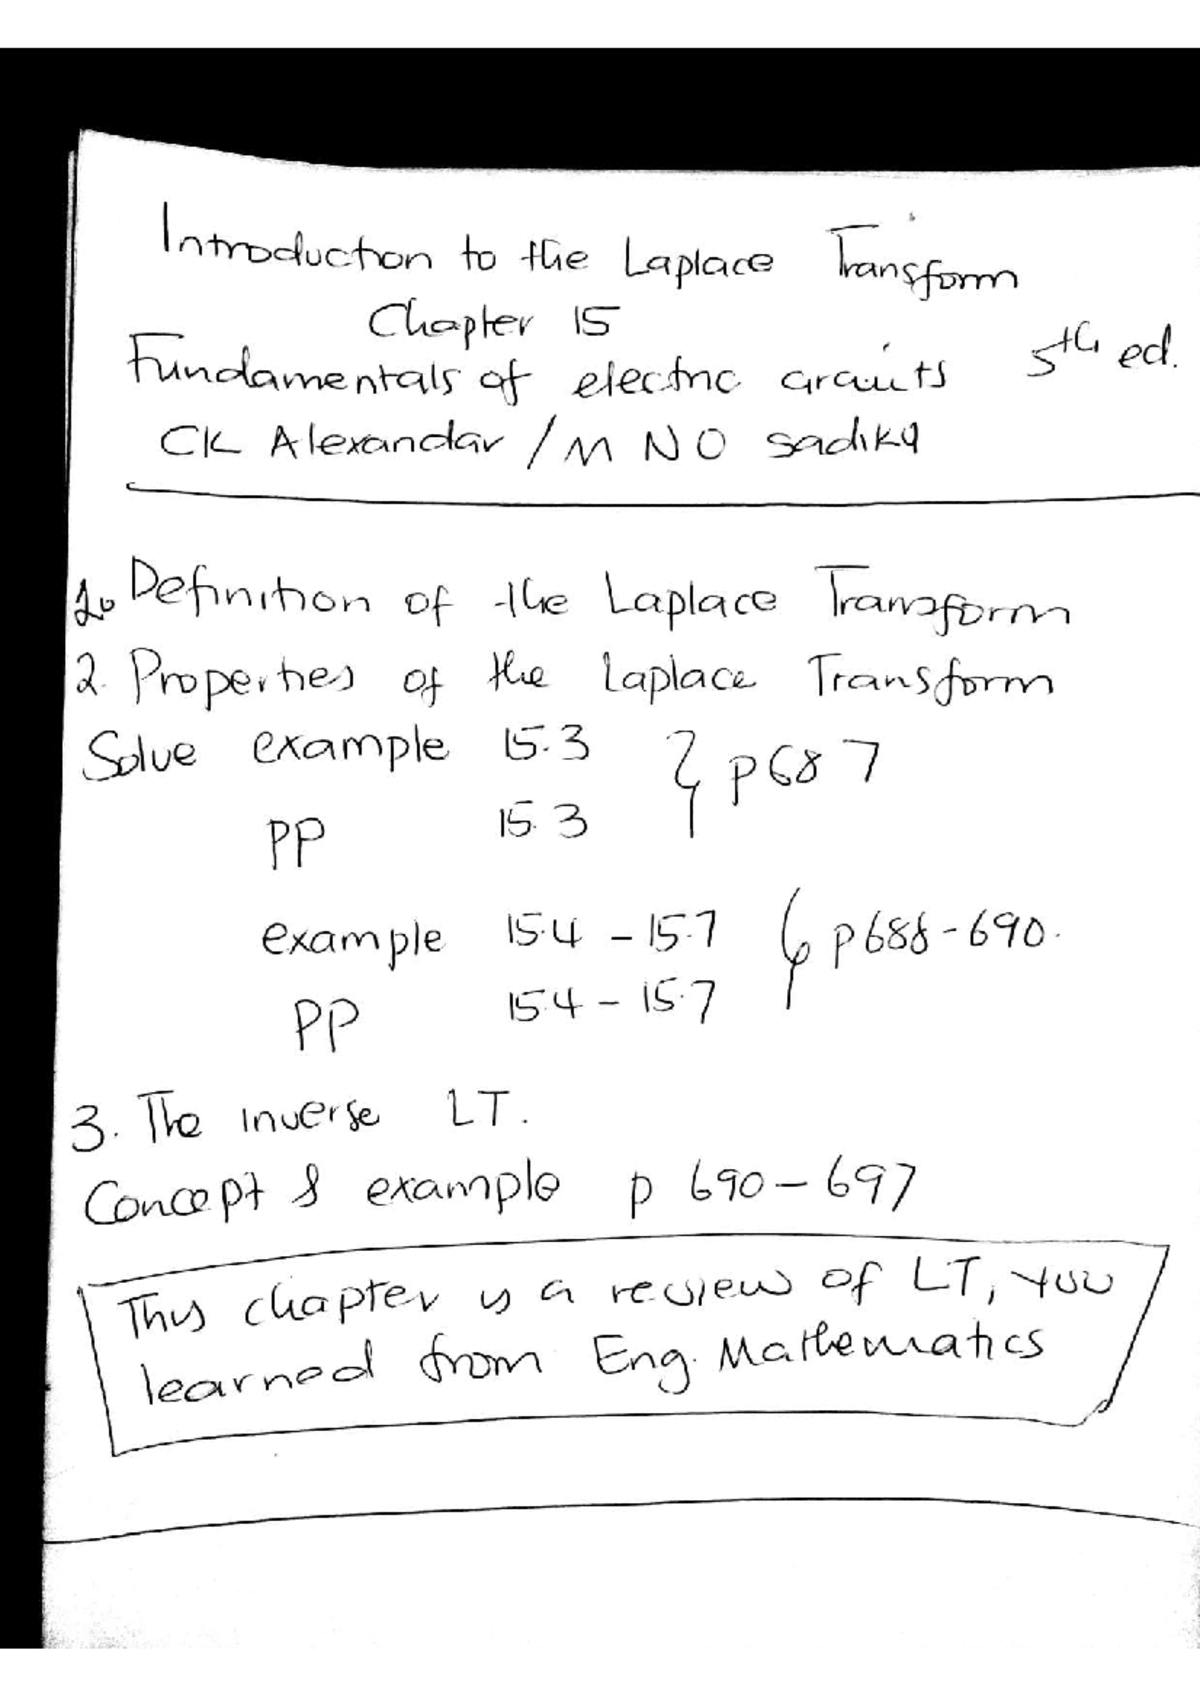 Introduction to the Laplace Transform
Chapter 15
Fundamentals of electric circuits 5th ed.
CK Alexandar / M N O sadiku
1. Definition of the Laplace Transform
2. Properties of the Laplace Transform
Solve example 15.3 } p687
PP 15.3
example 15.4 - 15.7 } p688-690.
PP 15.4 - 15.7
3. The inverse LT.
Concept & example p 690-697
This chapter is a review of LT, you
learned from Eng. Mathematics